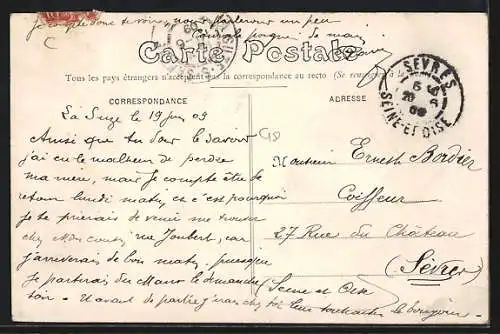 je
donc te voir, nous parlerons un peu
Carte Postale
Tous les pays étrangers n'acceptent pas la correspondance au recto (Se renseigner à la
SÈVRES
SEINE-ET-OISE
CORRESPONDANCE
ADRESSE
La Suze le 19 juin 09
Ainsi que tu dois le savoir
j'ai eu le malheur de perdre
ma mère, mais je compte être de
retour lundi matin, c'est pourquoi
je te prierais de venir me trouver
chez Mon cousin rue Joubert, car
j'arriverais de bon matin, puisque
je partirai du Mans le dimanche
soir - avant de partir j'irais chez toi leur souhaiter le bonjour
Monsieur Ernest Bordier
Coiffeur
27 Rue du Château
(Sèvres)
Seine et Oise